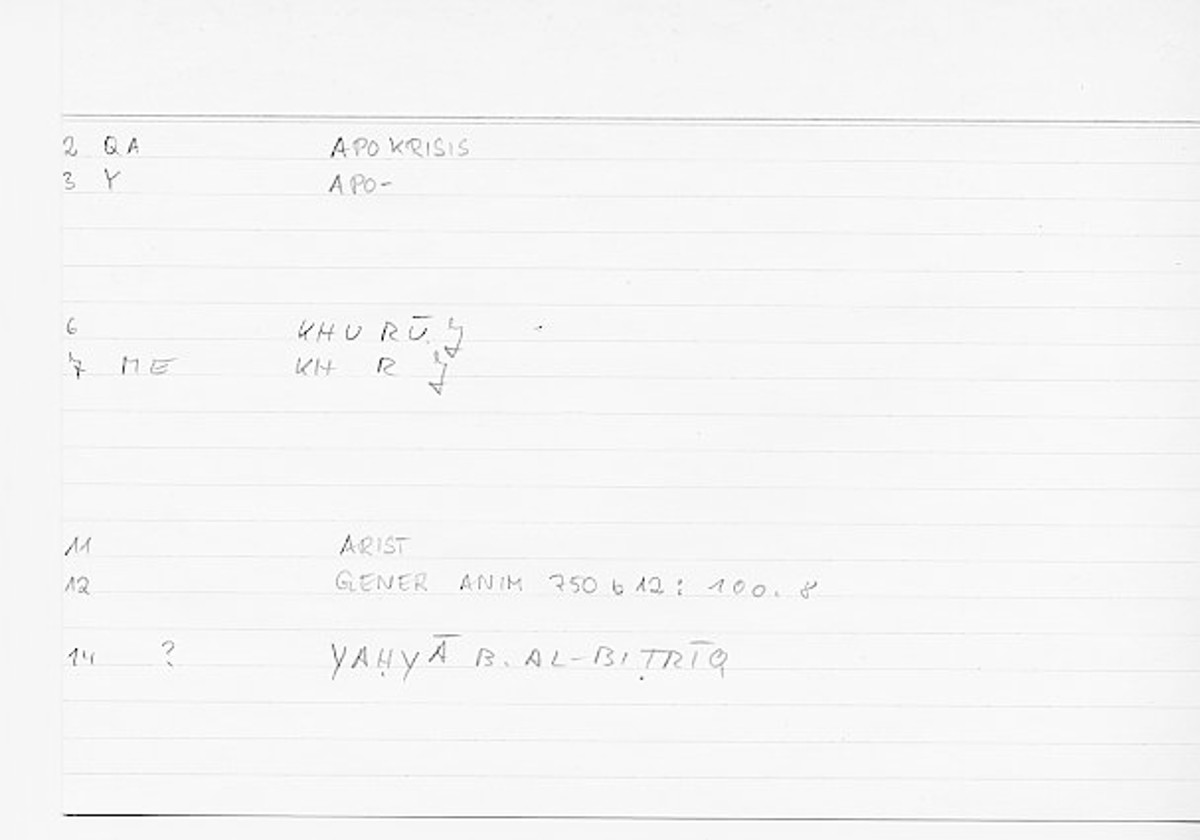 2 QA APOKRISIS
3 Y APO-
6 KHURŪǦ
7 ME KH R Ǧ
11 ARIST
12 GENER ANIM 750 b 12 : 100. 8
14 ? YAḤYĀ B. AL-BIṬRĪQ